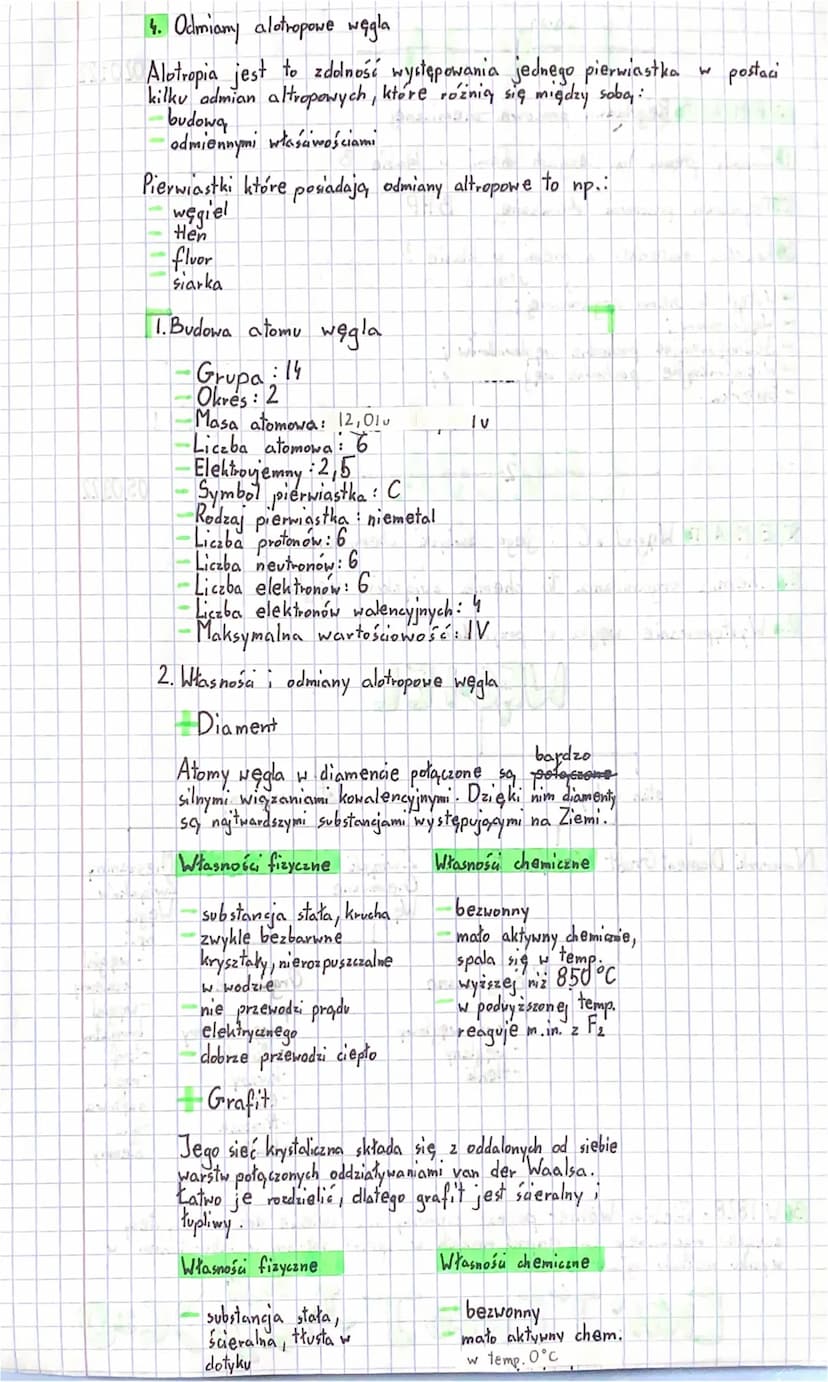 4. Odmiany alotropowe węgla
Alotropia jest to zdolność występowania jednego pierwiastka w postaci
kilku odmian altropowych, które różnią się między sobą:
- budową
- odmiennymi właśiwościami
Pierwiastki które posiadają odmiany altropowe to np.:
- węgiel
- tlen
- fluor
- siarka
1. Budowa atomu węgla
- Grupa: 14
- Okres: 2
- Masa atomowa: 12,01u
- Liczba atomowa: 6
- Elektroujemny: 2,5
- Symbol pierwiastka: C
- Rodzaj pierwiastka: niemetal
- Liczba protonów: 6
- Liczba neutronów: 6
- Liczba elektronów: 6
- Liczba elektronów walencyjnych: 4
- Maksymalna wartościowość: IV
2. Własności i odmiany alotropowe węgla
+ Diament
bardzo
Atomy węgla w diamencie połączone są połączone
silnymi wiązaniami kowalencyjnymi. Dzięki nim diamenty
są najtwardszymi substancjami występującymi na Ziemi.
Własności fizyczne
- substancja stała, krucha
- zwykle bezbarwne
kryształy, nierozpuszczalne
w wodzie
- nie przewodzi prądu
elektrycznego
- dobrze przewodzi ciepło
Własności chemiczne
- bezwonny
- mało aktywny chemicznie,
spala się w temp.
wyższej niż 850°C
- w podwyższonej temp.
reaguje m.in. z F₂
+ Grafit
Jego sieć krystaliczna składa się z oddalonych od siebie
warstw połączonych oddziaływaniami van der Waalsa.
Łatwo je rozdzielić, dlatego grafit jest ścieralny i
łupliwy.
Własności fizyczne
- substancja stała,
ścieralna, tłusta w
dotyku
Własności chemiczne
- bezwonny
- mało aktywny chem.
w temp. 0°C